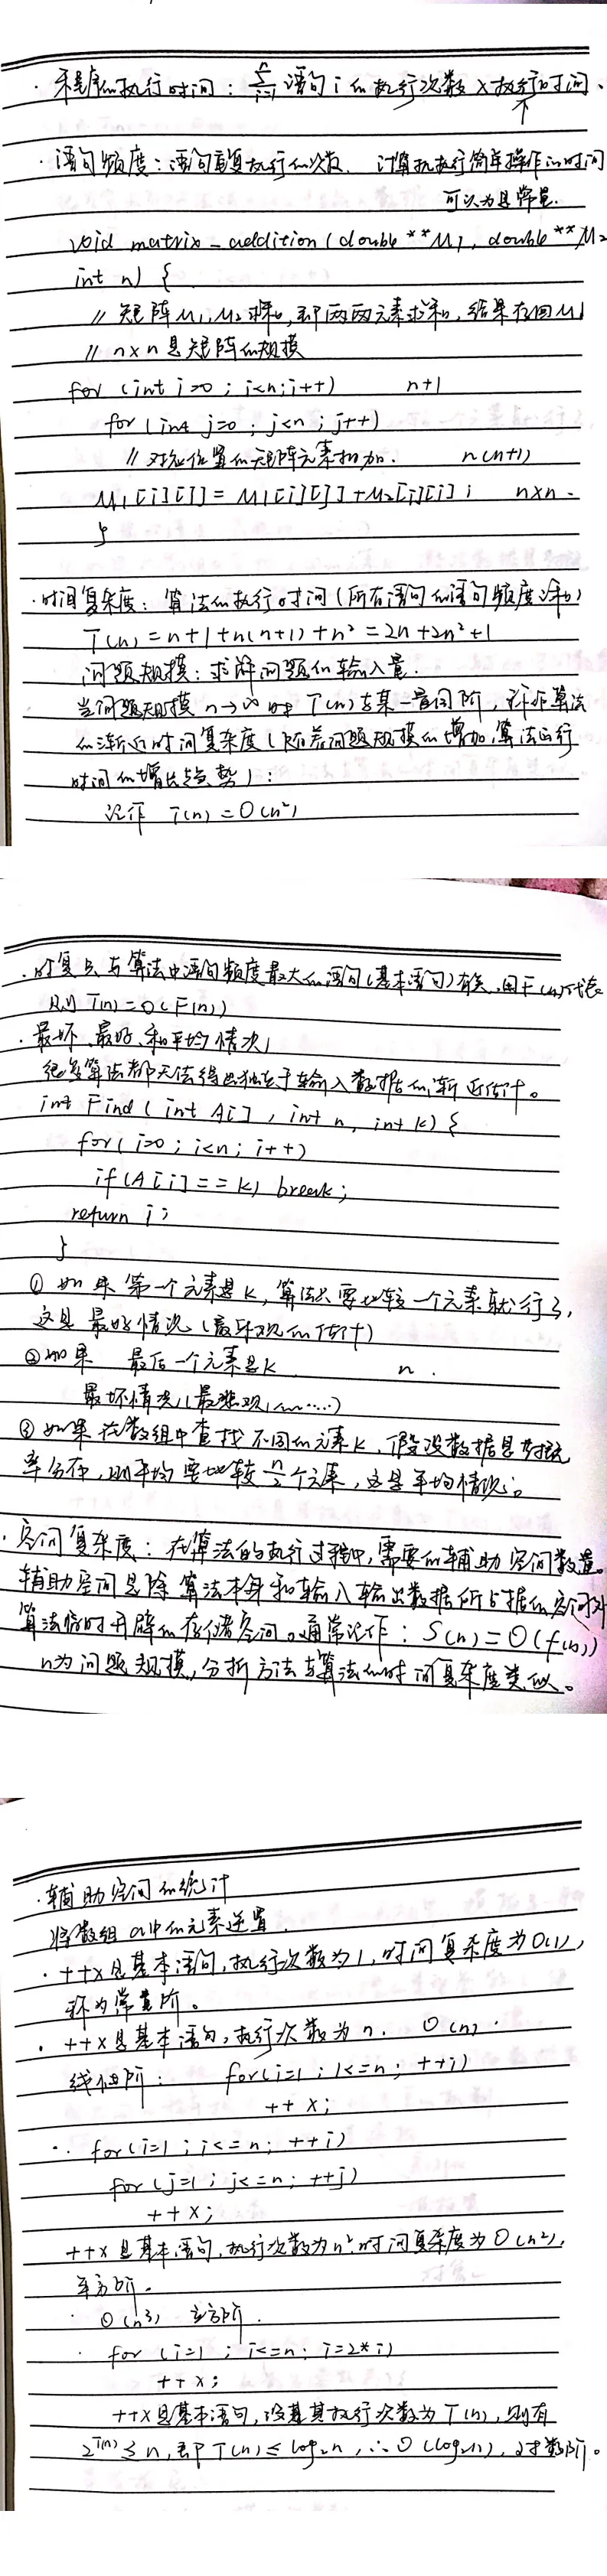 ·程序的执行时间：∑ i=1 语句i的执行次数×执行时间.
↑
·语句频度：语句重复执行的次数. 计算机执行简单操作的时间
可以为是常量.
void matrix_addition(double **M1, double **M2
int n) {
// 矩阵M1,M2求和,即两两元素求和,结果存回M1
// n×n是矩阵的规模
for (int i=0; i<n; i++) n+1
for (int j=0; j<n; j++)
// 对应位置的矩阵元素相加. n(n+1)
M1[i][j] = M1[i][j]+M2[i][j]; n×n.
}
·时间复杂度：算法的执行时间(所有语句的语句频度之和)
T(n)=n+1+n(n+1)+n²=2n+2n²+1
问题规模：求解问题的输入量.
当问题规模n→∞时 T(n)与某一量同阶，称作算法
的渐近时间复杂度(随着问题规模的增加,算法运行
时间的增长趋势)：
记作 T(n)=O(n²)
·时复只与算法中语句频度最大的语句(基本语句)有关,用F(n)代表
则 T(n)=O(F(n))
·最坏、最好、和平均情况
很多算法都无法得出独立于输入数据的渐近估计。
int Find(int A[], int n, int k) {
for(i=0; i<n; i++)
if(A[i]==k) break;
return i;
}
①如果第一个元素是k,算法只要比较一个元素就行了,
这是最好情况(最乐观的估计)
②如果 最后一个元素是k n.
最坏情况(最悲观……)
③如果在数组中查找不同的元素k,假设数据是等概
率分布,则平均要比较n/2个元素,这是平均情况。
·空间复杂度：在算法的执行过程中,需要的辅助空间数量。
辅助空间是除算法本身和输入输出数据所占据的空间外
算法临时开辟的存储空间。通常记作：S(n)=O(f(n))
n为问题规模,分析方法与算法的时间复杂度类似。
·辅助空间的统计
将数组a中的元素逆置.
·++x是基本语句,执行次数为1,时间复杂度为O(1),
称为常量阶。
·++x是基本语句,执行次数为n. O(n).
线性阶： for(i=1; i<=n; ++i)
++x;
·for(i=1; i<=n; ++i)
for(j=1; j<=n; ++j)
++x;
++x是基本语句,执行次数为n²,时间复杂度为O(n²),
平方阶.
·O(n³) 立方阶.
·for (i=1; i<=n; i=2*i)
++x;
++x是基本语句,设其执行次数为T(n),则有
2^T(n)≤n,即T(n)≤log₂n,∴O(log₂n),对数阶。